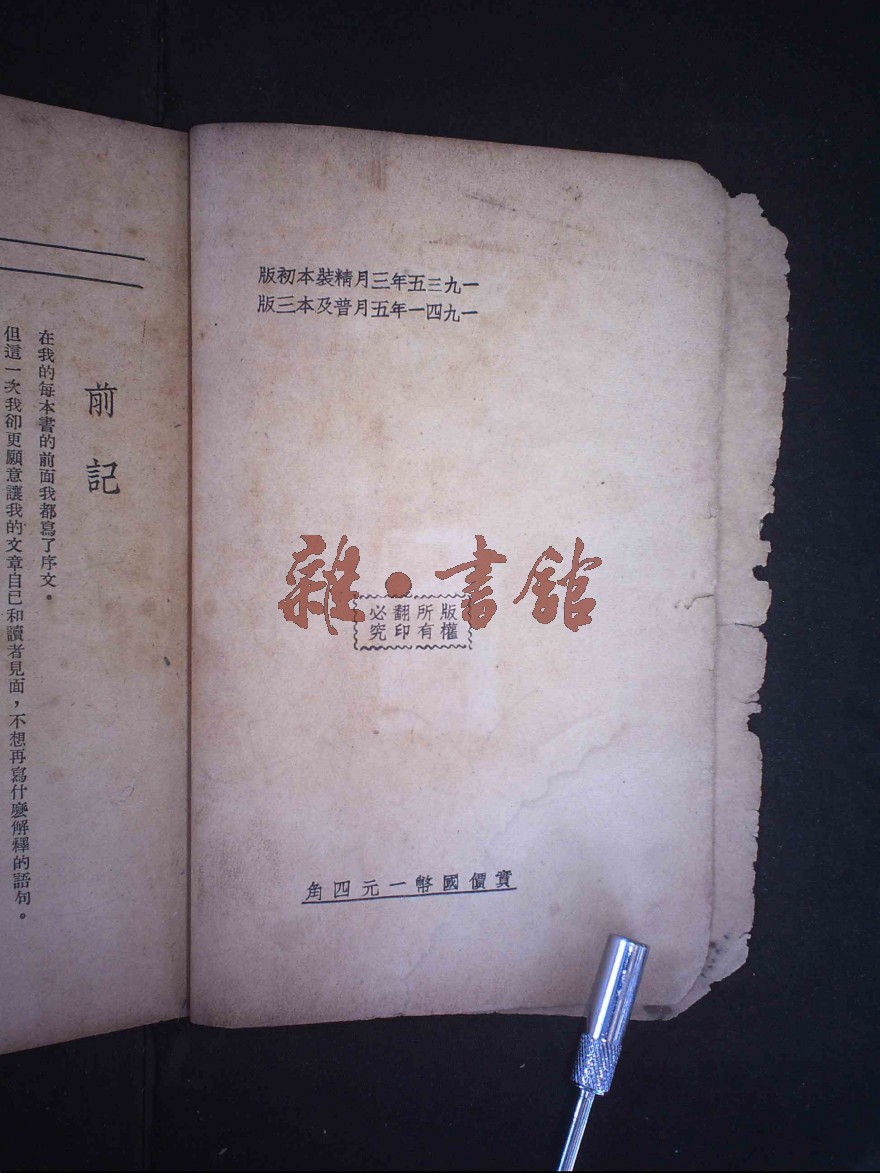 一九三五年三月精裝本初版
一九四一年五月普及本三版
雜·書館
版權所有
翻印必究
實價國幣一元四角
前記
在我的每本書的前面我都寫了序文。
但這一次我卻更願意讓我的文章自己和讀者見面，不想再寫什麼解釋的語句。